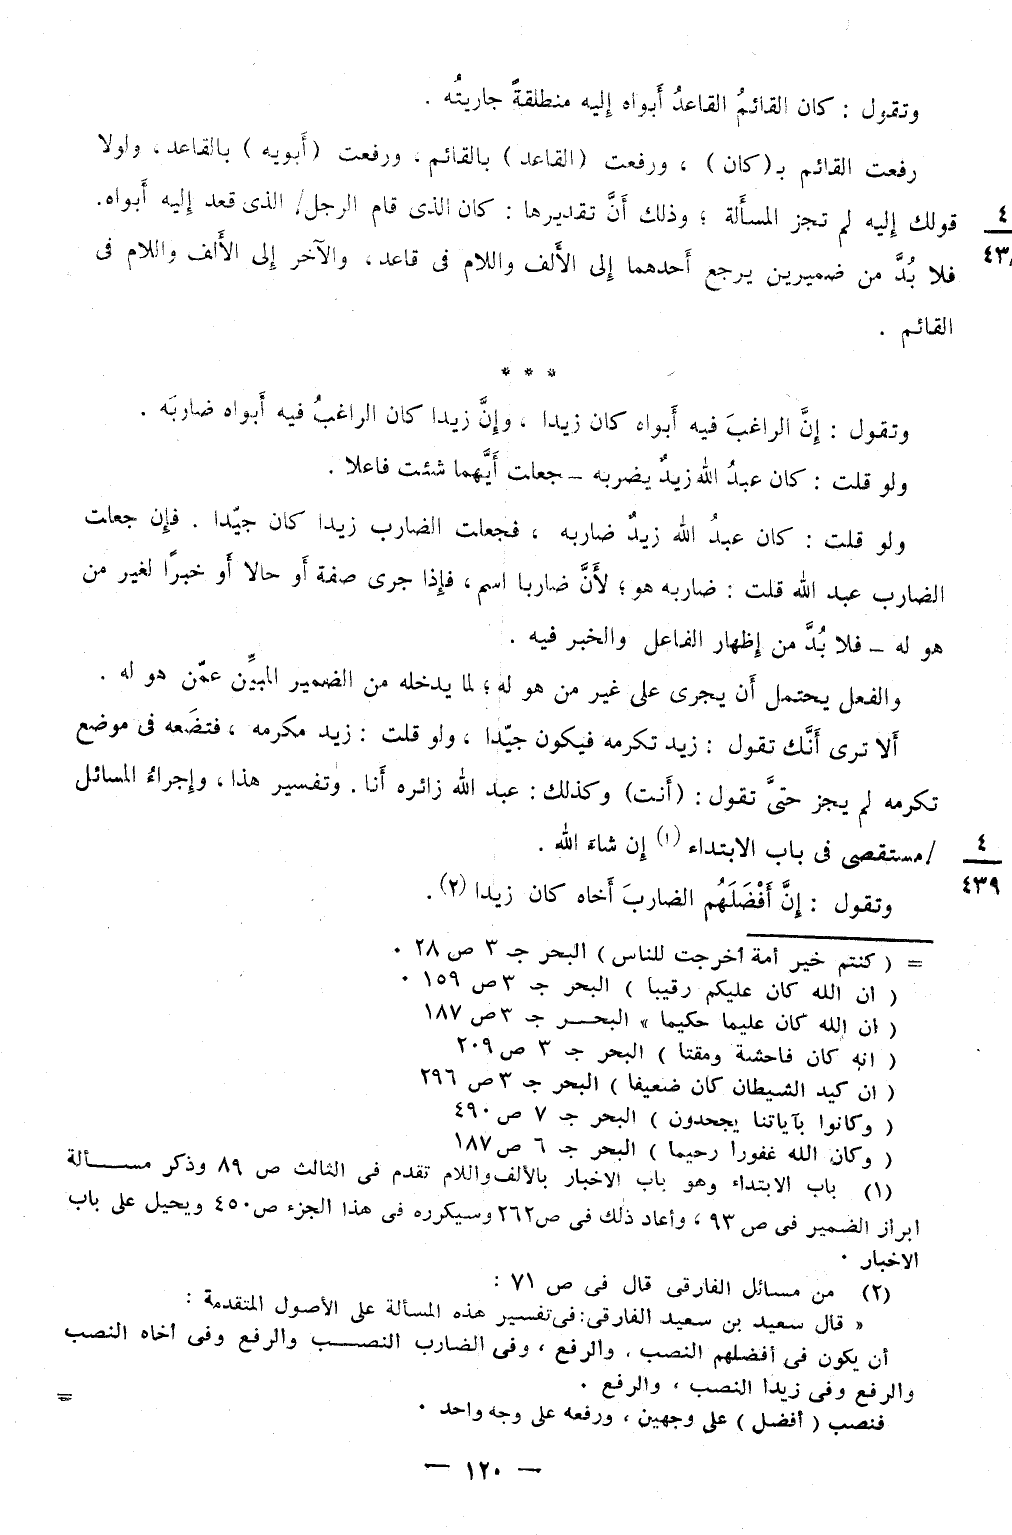 وتقول : كان القائمُ القاعدُ أَبواه إليه منطلقةً جاريتُه .
رفعت القائم بـ(كان) ، ورفعت (القاعد) بالقائم، ورفعت (أَبويه) بالقاعد، ولولا
قولك إليه لم تجز المسأَلة ؛ وذلك أَنَّ تقديرها : كان الذى قام الرجل/ الذى قعد إليه أَبواه.
٤
٤٣٨
فلا بُدَّ من ضميرين يرجع أَحدهما إلى الأَلف واللام فى قاعد، والآخر إلى الأَلف واللام فى
القائم .
* * *
وتقول : إنَّ الراغبَ فيه أَبواه كان زيدا ، وإنَّ زيدا كان الراغبُ فيه أَبواه ضاربَه .
ولو قلت : كان عبدُ الله زيدٌ يضربه – جعلت أَيَّهما شئت فاعلا .
ولو قلت : كان عبدُ الله زيدٌ ضاربه ، فجعلت الضارب زيدا كان جيّدا . فإن جعلت
الضارب عبد الله قلت : ضاربه هو ؛ لأَنَّ ضاربا اسم، فإذا جرى صفة أَو حالا أَو خبرًا لغير من
هو له – فلا بُدَّ من إظهار الفاعل والخبر فيه .
والفعل يحتمل أَن يجرى على غير من هو له ؛ لما يدخله من الضمير المبيِّن عمّن هو له .
أَلا ترى أَنَّك تقول : زيد تكرمه فيكون جيّدا ، ولو قلت : زيد مكرمه ، فتضَعه فى موضع
تكرمه لم يجز حتىَّ تقول : (أَنت) وكذلك : عبد الله زائره أَنا. وتفسير هذا، وإجراءُ المسائل
/مستقصى فى باب الابتداء (١) إن شاءَ الله .
٤
٤٣٩
وتقول : إنَّ أَفْضَلَهُم الضاربَ أَخاه كان زيدا (٢).
= ( كنتم خير أمة أخرجت للناس ) البحر جـ ٣ ص ٢٨ .
( ان الله كان عليكم رقيبا ) البحر جـ ٣ ص ١٥٩ .
( ان الله كان عليما حكيما » البحـــر جـ ٣ ص ١٨٧
( انه كان فاحشة ومقتا ) البحر جـ ٣ ص ٢٠٩
( ان كيد الشيطان كان ضعيفا ) البحر جـ ٣ ص ٢٩٦
( وكانوا بآياتنا يجحدون ) البحر جـ ٧ ص ٤٩٠
( وكان الله غفورا رحيما ) البحر جـ ٦ ص ١٨٧
(١) باب الابتداء وهو باب الاخبار بالألف واللام تقدم فى الثالث ص ٨٩ وذكر مســـألة
ابراز الضمير فى ص ٩٣ ، وأعاد ذلك فى ص ٢٦٢ وسيكرره فى هذا الجزء ص ٤٥٠ ويحيل على باب
الاخبار .
(٢) من مسائل الفارقى قال فى ص ٧١ :
« قال سعيد بن سعيد الفارقى: فى تفسير هذه المسألة على الأصول المتقدمة :
أن يكون فى أفضلهم النصب ، والرفع ، وفى الضارب النصـــب والرفع وفى أخاه النصب
والرفع وفى زيدا النصب ، والرفع .
فنصب ( أفضل ) على وجهين ، ورفعه على وجه واحد .
=
— ١٢٠ —